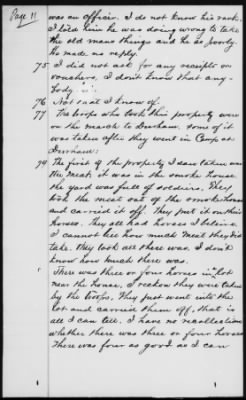 Page 11
was an officer. I do not know his rank.
I told him he was doing wrong to take
the old mans things and he so poorly.
He made no reply.
75 I did not ask for any receipts or
vouchers. I don't know that any-
body
76 Not that I know of.
77 The troops who took this property were
on the march to Durham. Some of it
was taken after they went in Camp at
Durham:
79 The first of the property I saw taken was
the meat; it was in the smoke house
the yard was full of soldiers. They
took the meat out of the smoke house
and carried it off. They put it on their
horses. They all had horses I believe
I cannot tell how much meat they did
take. They took all there was. I don't
know how much there was.
There was three or four horses in lot
near the house. I reckon they were taken
by the troops. They just went into the
lot and carried them off, that is
all I can tell. I have no recollection
whether there was three or four horses
There was four as good as I can